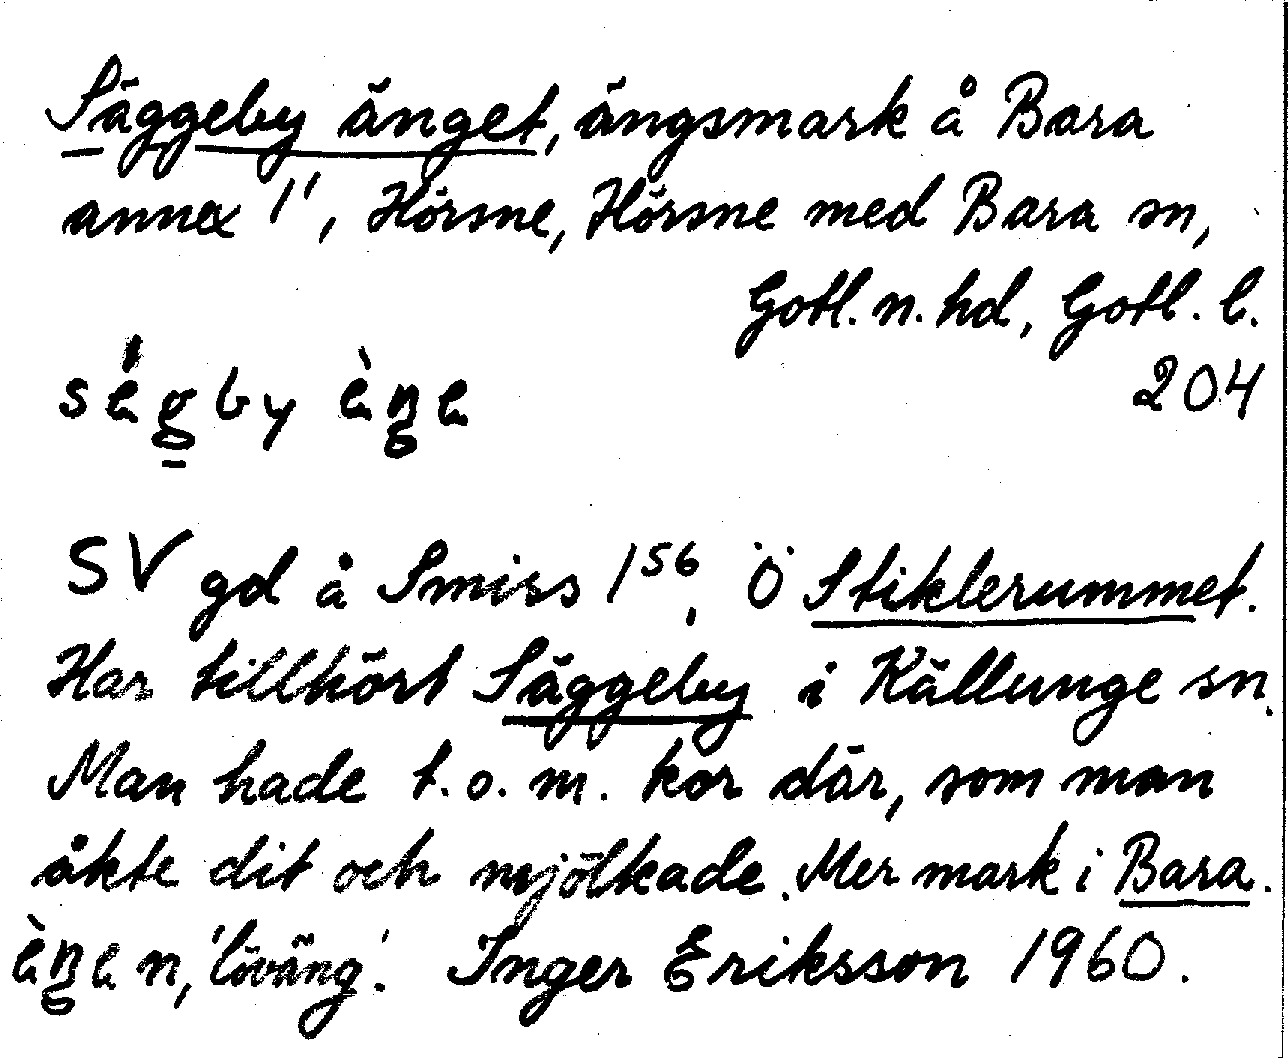 Säggeby änget, ängsmark å Bara
annex 1¹, Hörsne, Hörsne med Bara sn,
Gotl. n. hd, Gotl. l.
204
SV gd å Smiss 1⁵⁶, Ö Stiklerummet.
Har tillhört Säggeby i Källunge sn.
Man hade t.o.m. kor där, som man
åkte dit och mjölkade. Mer mark i Bara.
n, 'löväng'. Inger Eriksson 1960.